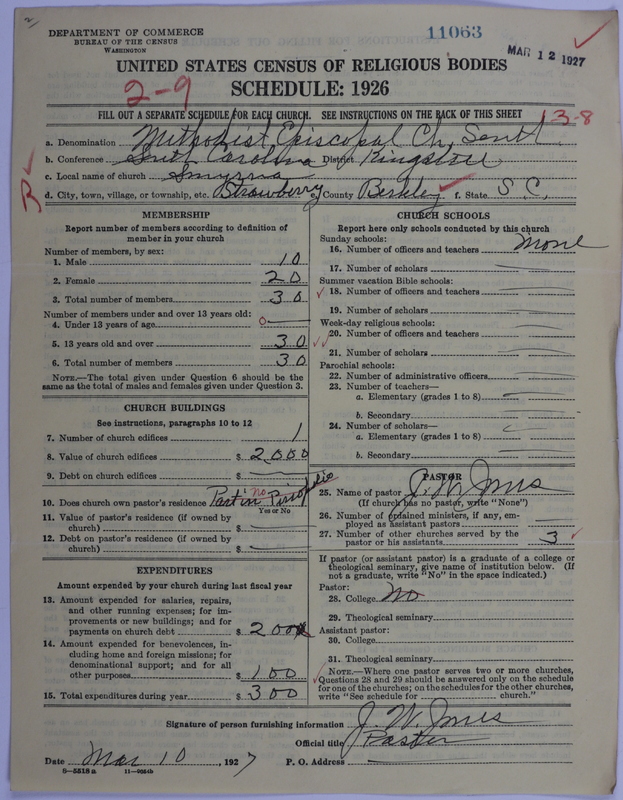 DEPARTMENT OF COMMERCE
BUREAU OF THE CENSUS
WASHINGTON
11063
MAR 12 1927
UNITED STATES CENSUS OF RELIGIOUS BODIES
SCHEDULE: 1926
2-9
FILL OUT A SEPARATE SCHEDULE FOR EACH CHURCH. SEE INSTRUCTIONS ON THE BACK OF THIS SHEET
13-8
a. Denomination Methodist Episcopal Ch, South
b. Conference South Carolina District Kingstree
c. Local name of church Smyrna
d. City, town, village, or township, etc. Strawberry e. County Berkley f. State S C,
MEMBERSHIP
Report number of members according to definition of member in your church
Number of members, by sex:
1. Male 10
2. Female 20
3. Total number of members 30
Number of members under and over 13 years old:
4. Under 13 years of age 0
5. 13 years old and over 30
6. Total number of members 30
NOTE.—The total given under Question 6 should be the same as the total of males and females given under Question 3.
CHURCH BUILDINGS
See instructions, paragraphs 10 to 12
7. Number of church edifices 1
8. Value of church edifices $ 2,000
9. Debt on church edifices $
10. Does church own pastor's residence? Part in no
Yes or No
11. Value of pastor's residence (if owned by church) $
12. Debt on pastor's residence (if owned by church) $
EXPENDITURES
Amount expended by your church during last fiscal year
13. Amount expended for salaries, repairs, and other running expenses; for improvements or new buildings; and for payments on church debt $ 200
14. Amount expended for benevolences, including home and foreign missions; for denominational support; and for all other purposes $ 100
15. Total expenditures during year $ 300
CHURCH SCHOOLS
Report here only schools conducted by this church
Sunday schools:
16. Number of officers and teachers None
17. Number of scholars
Summer vacation Bible schools:
18. Number of officers and teachers
19. Number of scholars
Week-day religious schools:
20. Number of officers and teachers
21. Number of scholars
Parochial schools:
22. Number of administrative officers
23. Number of teachers—
a. Elementary (grades 1 to 8)
b. Secondary
24. Number of scholars—
a. Elementary (grades 1 to 8)
b. Secondary
PASTOR
25. Name of pastor J. W. Jones
(If church has no pastor, write "None")
26. Number of ordained ministers, if any, employed as assistant pastors
27. Number of other churches served by the pastor or his assistants 3
If pastor (or assistant pastor) is a graduate of a college or theological seminary, give name of institution below. (If not a graduate, write "No" in the space indicated.)
Pastor:
28. College No
29. Theological seminary
Assistant pastor:
30. College
31. Theological seminary
NOTE.—Where one pastor serves two or more churches, Questions 28 and 29 should be answered only on the schedule for one of the churches; on the schedules for the other churches, write "See schedule for church."
Signature of person furnishing information J. W. Jones
Official title Pastor
Date Mar 10, 1927 P. O. Address
8-5518 a 11-9054b